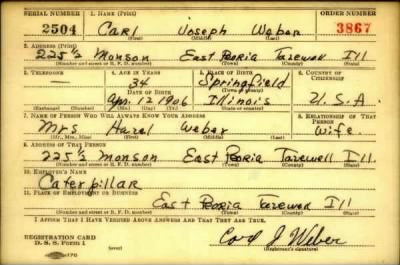 SERIAL NUMBER 1. NAME (Print) ORDER NUMBER
2504 Carl Joseph Weber 3867
(First) (Middle) (Last)
2. ADDRESS (Print)
225½ Monson East Peoria Tazewell Ill
(Number and street or R. F. D. number) (Town) (County) (State)
3. TELEPHONE 4. AGE IN YEARS 5. PLACE OF BIRTH 6. COUNTRY OF CITIZENSHIP
— 34 Springfield
DATE OF BIRTH (Town or county)
Apr. 12 1906 Illinois U.S.A
(Exchange) (Number) (Mo.) (Day) (Yr.) (State or country)
7. NAME OF PERSON WHO WILL ALWAYS KNOW YOUR ADDRESS 8. RELATIONSHIP OF THAT PERSON
Mrs Hazel Weber Wife
(Mr., Mrs., Miss) (First) (Middle) (Last)
9. ADDRESS OF THAT PERSON
225½ Monson East Peoria Tazewell Ill
(Number and street or R. F. D. number) (Town) (County) (State)
10. EMPLOYER'S NAME
Caterpillar
11. PLACE OF EMPLOYMENT OR BUSINESS
East Peoria Tazewell Ill
(Number and street or R. F. D. number) (Town) (County) (State)
I AFFIRM THAT I HAVE VERIFIED ABOVE ANSWERS AND THAT THEY ARE TRUE.
REGISTRATION CARD
D. S. S. Form 1 (over) Carl J Weber
(Registrant's signature)